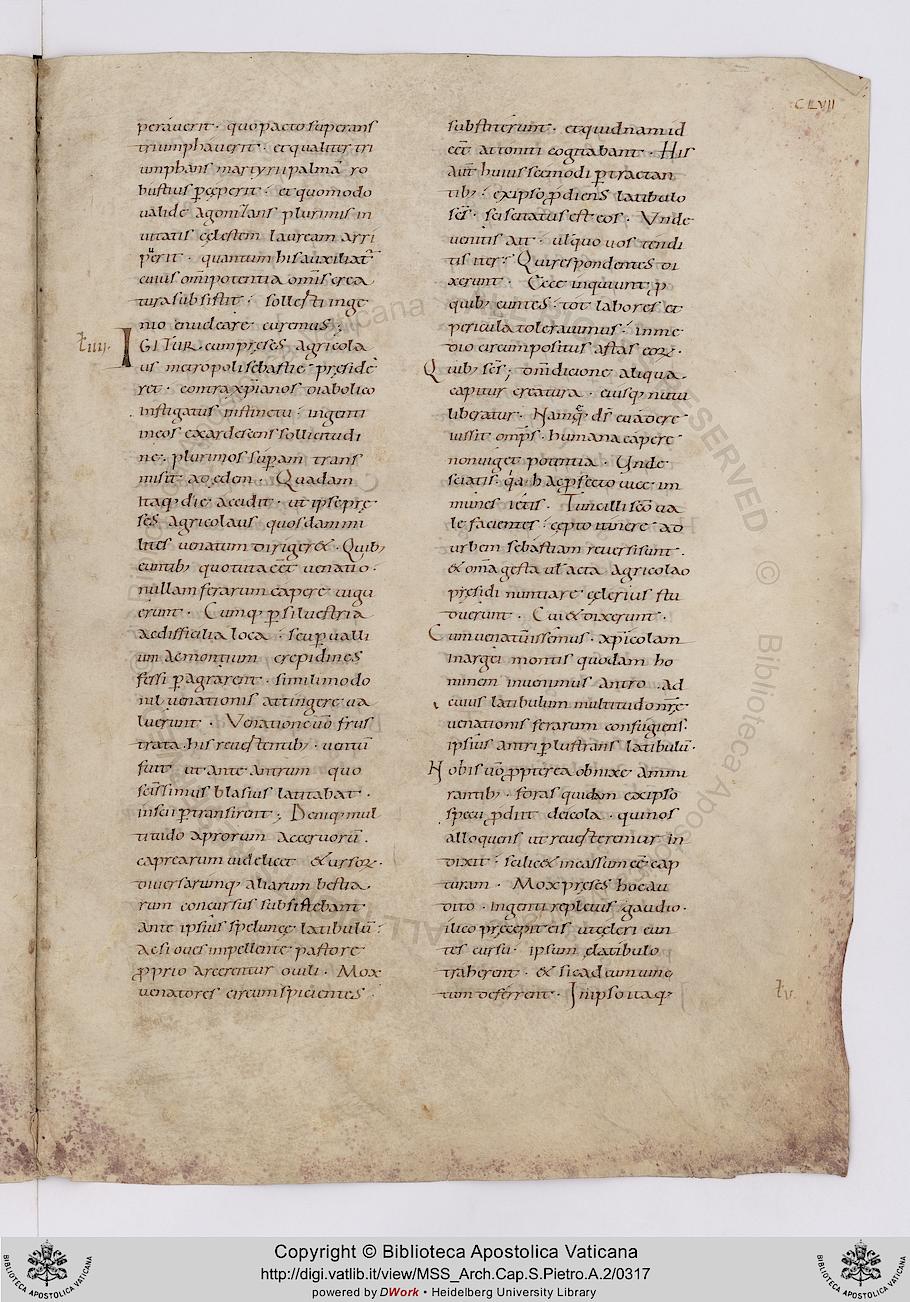 CLVII
perauerit · quo pacto superans
triumphauerit · et qualiter tri
umphans martyrii palmā ro
bustius pceperit · et quomodo
ualide agonizans plurimis in
uitatis cęlestem lauream arri
puerit · quantum his auxiliat̄
cuius om̄ipotentia om̄is crea
tura subsistit · sollerti inge
nio enucleare curemus ;
ł iiii · IGITUR · cum pręses agricola
us metropoli sebastię pręside
ret · contra xp̄ianos diabolico
instigatus instinctu · ingenti
in eos exardescens sollicitudi
ne · plurimos sup̄am trans
misit ad eden · Quadam
itaq; die accidit · ut ipse prę
ses agricolaus quosdam mi
lites uenatum dirigeret · Quib;
euntib; quo tuta eet uenatio ·
nullam ferarum capere uigu
erunt · Cumq; p siluestria
ac difficilia loca · seu p ualli
um ac montium crepidines
fessi pagrarent · simili modo
nil uenationis attingere ua
luerunt · Venatione uō frus
trata · his reuertentib; · uentū
fuit ut ante antrum quo
scissimus blasius latitabat ·
inscii ptransirent ; Deniq; mul
titudo aprorum · aceruorū ·
caprearum uidelicet et ursoꝝ ·
diuersarumq; aliarum bestia
rum concursus subsistebant
ante ipsius speluncę latibulū ·
ac si oues impellente pastore
pprio arcerentur ouili · Mox
uenatores circumspicientes ·
substiterunt · et quid nam id
eet attoniti cogitabant · His
aut̄ huiuscemodi ptractan
tib; · ex ipso pdiens latibulo
sc̄s · sciscitatus est eos · Vnde
uenitis ait · ul' quo uos tendi
tis iter · Qui respondentes di
xerunt · Ecce inquiunt p
quib; euntes · tot labores et
pericula tolerauimus · in me
dio circumpositus astas eoꝝ ·
Quib; sc̄s ; dn̄i dicione aliqua
capitur creatura · eiusq; nutu
liberatur · Namq; ds̄ euadere
iussit omp̄s · humana capere
non uiget potentia · Unde
sciatis · qa hac pfecto uice im
munes ietis · Tunc illi sc̄o ua
le facientes · cępto itinere ad
urbem sebastiam reuersi sunt ·
et om̄a gesta ul' acta agricolao
pręsidi nuntiare cęlerius stu
duerunt · Cui et dixerunt ·
Cum uenatū issemus · xp̄icolam
in argei montis quodam ho
minem inuenimus antro · ad
cuius latibulum multitudo nrę
uenationis ferarum confugiens
ipsius antri plustrans latibulū ·
Nobis uō ppterea obnixe ammi
rantib; · foras quidam ex ipso
specu pdiit deicola · qui nos
alloquens ut reuerteremur in
dixit · scilicet in cassum eē cap
turam · Mox pręses hoc au
dito · ingenti repletus gaudio ·
ilico pręcepit eis ut cęleri eun
tes cursu · ipsum e latibulo
traherent · et sic ad eum uinc
tum deferrent · In ipso itaq;
ł v ·
Copyright © Biblioteca Apostolica Vaticana
http://digi.vatlib.it/view/MSS_Arch.Cap.S.Pietro.A.2/0317
powered by DWork • Heidelberg University Library
BIBLIOTECA APOSTOLICA VATICANA
BIBLIOTECA APOSTOLICA VATICANA